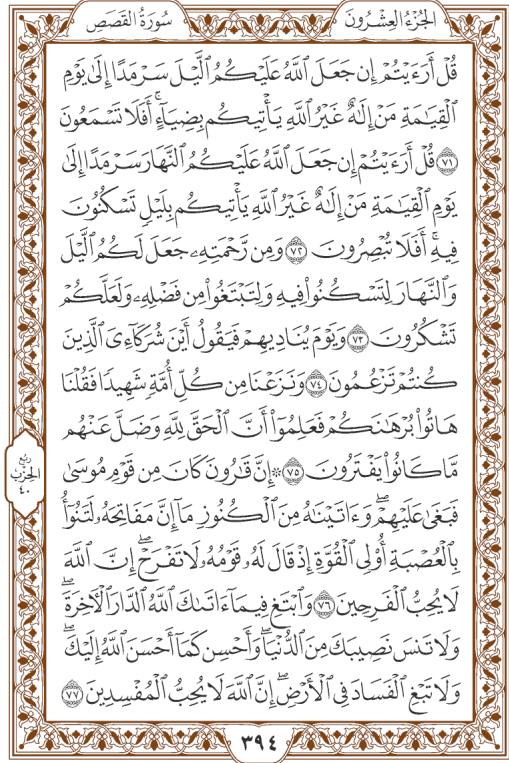 الجُزْءُ العِشْرُونَ
سُورَةُ القَصَصِ
قُلْ أَرَءَيْتُمْ إِن جَعَلَ ٱللَّهُ عَلَيْكُمُ ٱلَّيْلَ سَرْمَدًا إِلَىٰ يَوْمِ
ٱلْقِيَٰمَةِ مَنْ إِلَٰهٌ غَيْرُ ٱللَّهِ يَأْتِيكُم بِضِيَآءٍ ۖ أَفَلَا تَسْمَعُونَ
٧١ قُلْ أَرَءَيْتُمْ إِن جَعَلَ ٱللَّهُ عَلَيْكُمُ ٱلنَّهَارَ سَرْمَدًا إِلَىٰ
يَوْمِ ٱلْقِيَٰمَةِ مَنْ إِلَٰهٌ غَيْرُ ٱللَّهِ يَأْتِيكُم بِلَيْلٍ تَسْكُنُونَ
فِيهِ ۖ أَفَلَا تُبْصِرُونَ ٧٢ وَمِن رَّحْمَتِهِۦ جَعَلَ لَكُمُ ٱلَّيْلَ
وَٱلنَّهَارَ لِتَسْكُنُوا۟ فِيهِ وَلِتَبْتَغُوا۟ مِن فَضْلِهِۦ وَلَعَلَّكُمْ
تَشْكُرُونَ ٧٣ وَيَوْمَ يُنَادِيهِمْ فَيَقُولُ أَيْنَ شُرَكَآءِىَ ٱلَّذِينَ
كُنتُمْ تَزْعُمُونَ ٧٤ وَنَزَعْنَا مِن كُلِّ أُمَّةٍ شَهِيدًا فَقُلْنَا
هَاتُوا۟ بُرْهَٰنَكُمْ فَعَلِمُوٓا۟ أَنَّ ٱلْحَقَّ لِلَّهِ وَضَلَّ عَنْهُم
مَّا كَانُوا۟ يَفْتَرُونَ ٧٥ ۞ إِنَّ قَٰرُونَ كَانَ مِن قَوْمِ مُوسَىٰ
فَبَغَىٰ عَلَيْهِمْ ۖ وَءَاتَيْنَٰهُ مِنَ ٱلْكُنُوزِ مَآ إِنَّ مَفَاتِحَهُۥ لَتَنُوٓأُ
بِٱلْعُصْبَةِ أُو۟لِى ٱلْقُوَّةِ إِذْ قَالَ لَهُۥ قَوْمُهُۥ لَا تَفْرَحْ ۖ إِنَّ ٱللَّهَ
لَا يُحِبُّ ٱلْفَرِحِينَ ٧٦ وَٱبْتَغِ فِيمَآ ءَاتَىٰكَ ٱللَّهُ ٱلدَّارَ ٱلْءَاخِرَةَ ۖ
وَلَا تَنسَ نَصِيبَكَ مِنَ ٱلدُّنْيَا ۖ وَأَحْسِن كَمَآ أَحْسَنَ ٱللَّهُ إِلَيْكَ ۖ
وَلَا تَبْغِ ٱلْفَسَادَ فِى ٱلْأَرْضِ ۖ إِنَّ ٱللَّهَ لَا يُحِبُّ ٱلْمُفْسِدِينَ ٧٧
رُبع
الحِزْبِ
٤٠
٣٩٤